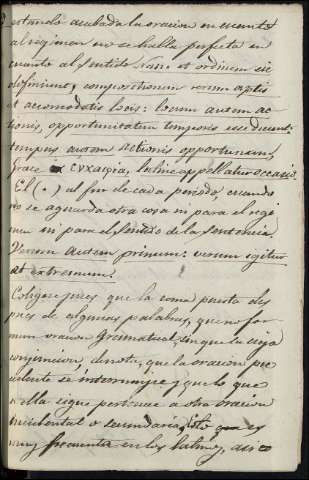 estando acabada la oracion en cuanto
al régimen no se halla perfecta en
cuanto al sentido. Nam et ordinem sic
definiunt, compositionem rerum aptis
et acomodatis locis: locum autem ac-
tionis, opportunitatem temporis esse dicunt:
tempus autem actionis opportunum,
Græce ευκαιρία, latine appellatur occasio.
El (.) al fin de cada periodo, cuando
no se aguarda otra cosa ni para el regi-
men ni para el sentido de la sentencia.
Verum autem primum: verum igitur
et extremum.
Coligese pues que la coma puesta des
pues de algunas palabras, que no for
man oracion Gramatical, sin que le siga
conjuncion, denota, que la oracion pre
cedente se interrumpe; y que lo que
a ella sigue pertenece a otra oracion
incidental o secundaria, esto que es
muy frecuente en los latinos, asi co